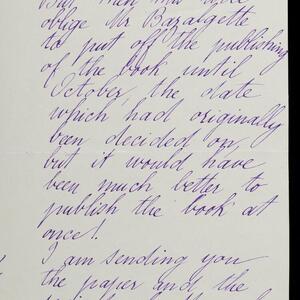 oblige Mr Bazalgette
to put off the publishing
of the book until
October, the date
which had originally
been decided on,
but it would have
been much better to
publish the book at
once!
I am sending you
the paper and the